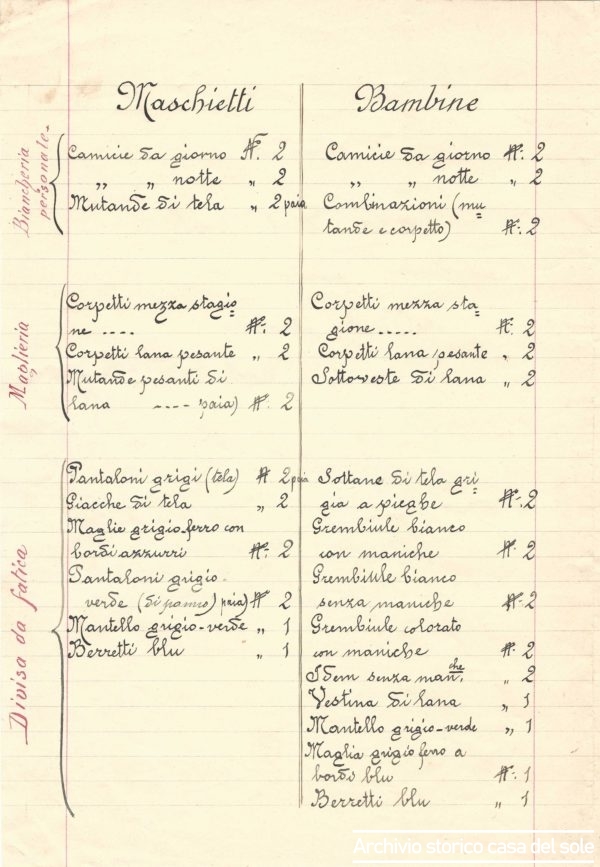 Maschietti
Biancheria
personale
Camicie da giorno N. 2
„ „ notte „ 2
Mutande di tela „ 2 paia
Maglieria
Corpetti mezza stagio=
ne .... N. 2
Corpetti lana pesante „ 2
Mutande pesanti di
lana ---- paia) N. 2
Divisa da fatica
Pantaloni grigi (tela) N 2 paia
Giacche di tela „ 2
Maglie grigio-ferro con
bordi azzurri N. 2
Pantaloni grigio-
verde (di panno) paia) N 2
Mantello grigio-verde „ 1
Berretti blu „ 1
Bambine
Camicie da giorno N. 2
„ „ notte „ 2
Combinazioni (mu=
tande e corpetto) N. 2
Corpetti mezza sta=
gione ..... N. 2
Corpetti lana pesante „ 2
Sottoveste di lana „ 2
Sottane di tela gri=
gia a pieghe N. 2
Grembiule bianco
con maniche N. 2
Grembiule bianco
senza maniche N. 2
Grembiule colorato
con maniche N. 2
Idem senza maniche „ 2
Vestina di lana „ 1
Mantello grigio-verde „ 1
Maglia grigio ferro a
bordi blu N. 1
Berretti blu „ 1
Archivio storico casa del sole